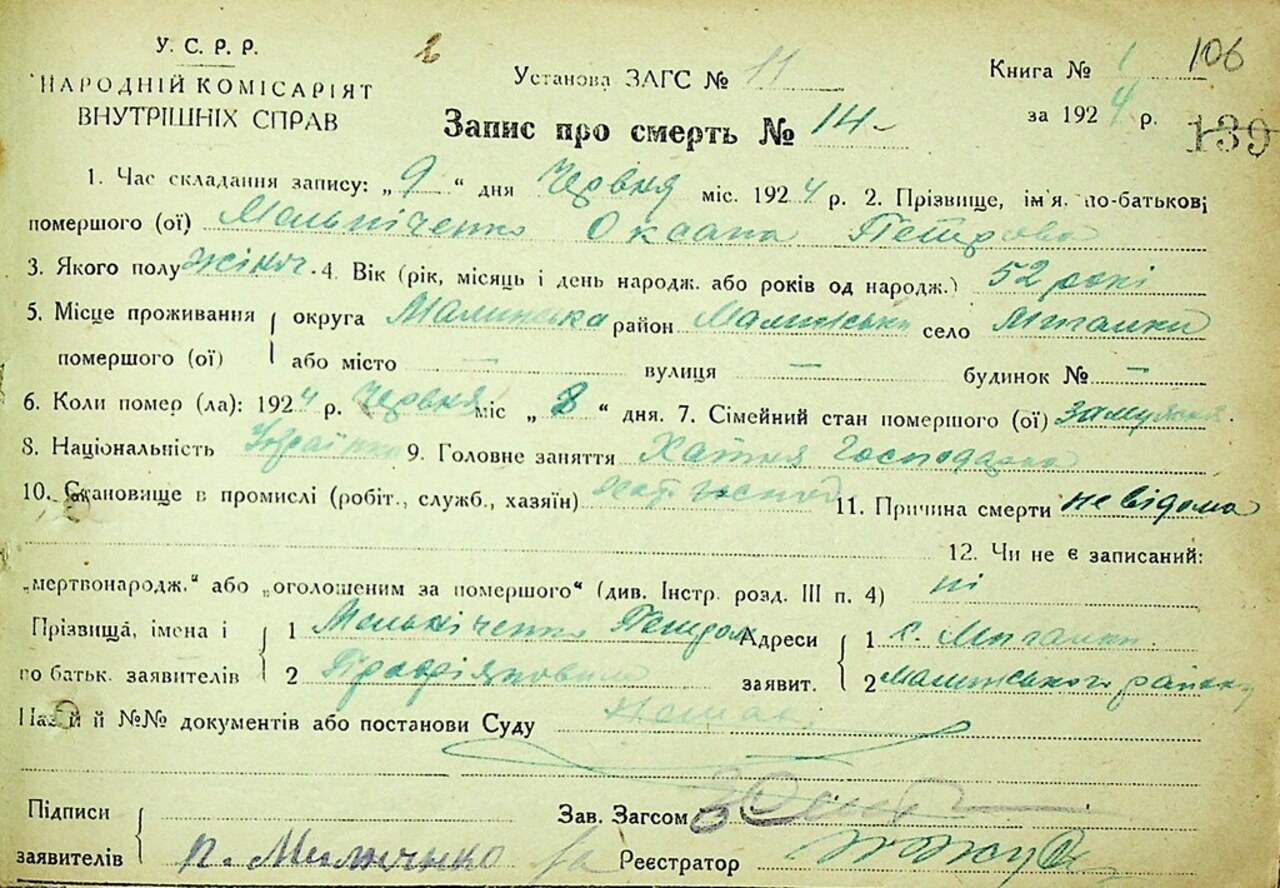 У. С. Р. Р.
НАРОДНІЙ КОМІСАРІЯТ
ВНУТРІШНІХ СПРАВ
2
Установа ЗАГС № 11
Книга № 1 106
за 1924 р. 139
Запис про смерть № 14-
1. Час складання запису: „9“ дня Червня міс. 1924 р. 2. Прізвище, ім'я, по-батькові
помершого (ої) Мельніченко Оксана Петрова
3. Якого полу жіноч. 4. Вік (рік, місяць і день народж. або років од народж.) 52 рокі
5. Місце проживання округа Малинська район Малинський село
помершого (ої) або місто — вулиця — будинок № —
6. Коли помер (ла): 1924 р. Червня міс „8“ дня. 7. Сімейний стан помершого (ої) замужня.
8. Національність Українка 9. Головне заняття Хатня Господарка
10. Становище в промислі (робіт., служб., хазяїн) хат. господ 11. Причина смерти не відома
12. Чи не є записаний:
„мертвонародж.“ або „оголошеним за помершого“ (див. Інстр. розд. III п. 4) ні
Прізвища, імена і 1 Мельніченко Адреси 1 с.
по батьк. заявителів 2 заявит. 2 Малинського району
Назви й №№ документів або постанови Суду Немає
Підписи Зав. Загсом
заявителів п. Реєстратор